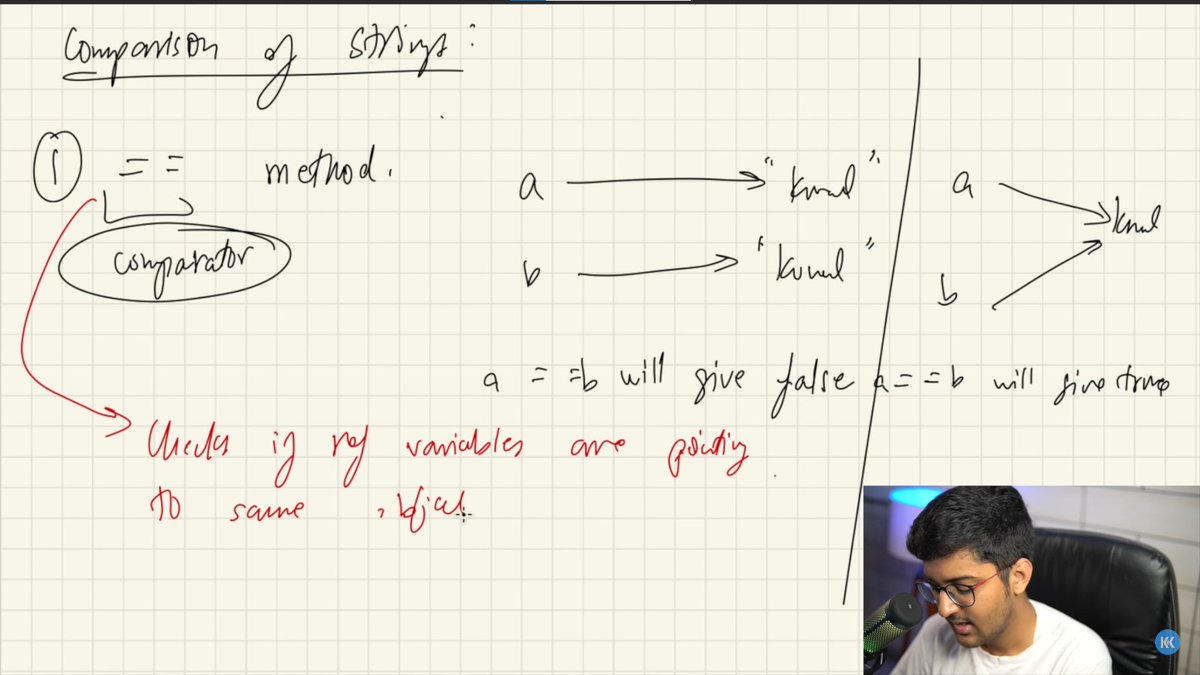 Comparison of Strings:
1 == method.
comparator
a → "kunal"
b → "kunal"
a kunal
b
a = =b will give false
a = =b will give true
Checks if ref variables are pointing
to same object
KK